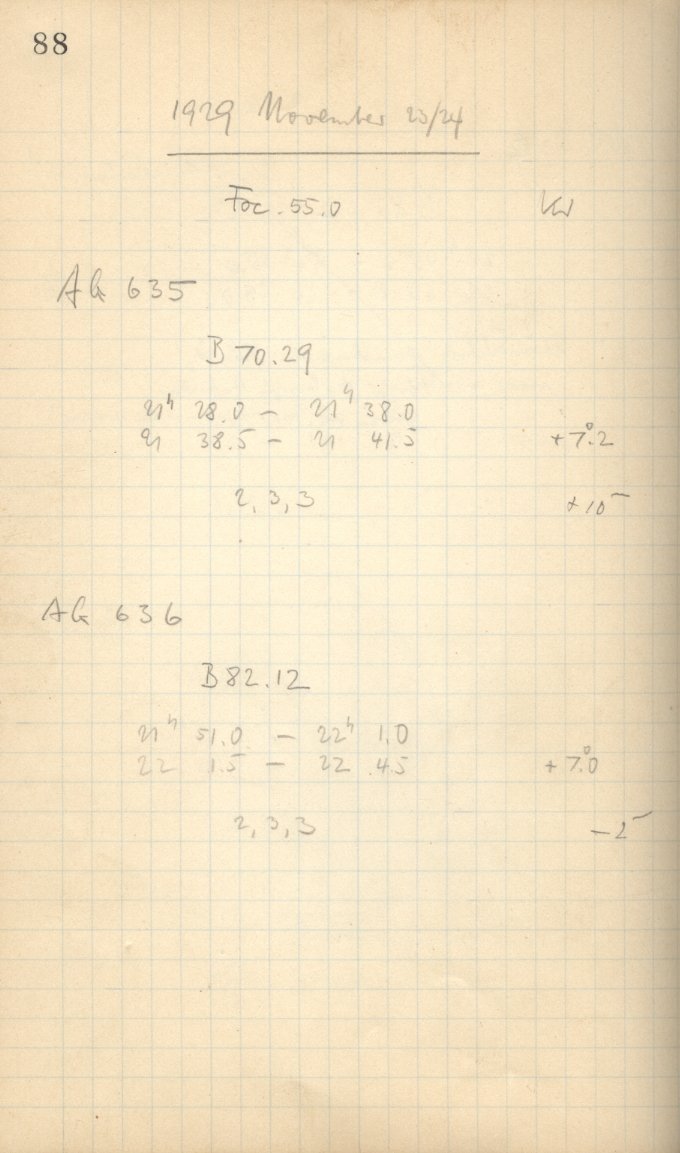 88
1929 November 23/24
Foc. 55.0 KW
AG 635
B 70.29
21h 28.0 – 21h 38.0
21 38.5 – 21 41.5 +7°.2
2, 3, 3 +10
AG 636
B 82.12
21h 51.0 – 22h 1.0
22 1.5 – 22 4.5 +7°.0
2, 3, 3 –2